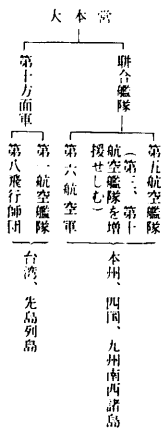 大本営
聯合艦隊
第五航空艦隊
(第三、第十
航空艦隊を増
援せしむ)
第六航空軍
本州、四国、九州南西諸島
第十方面軍
第一航空艦隊
第八飛行師団
台湾、先島列島